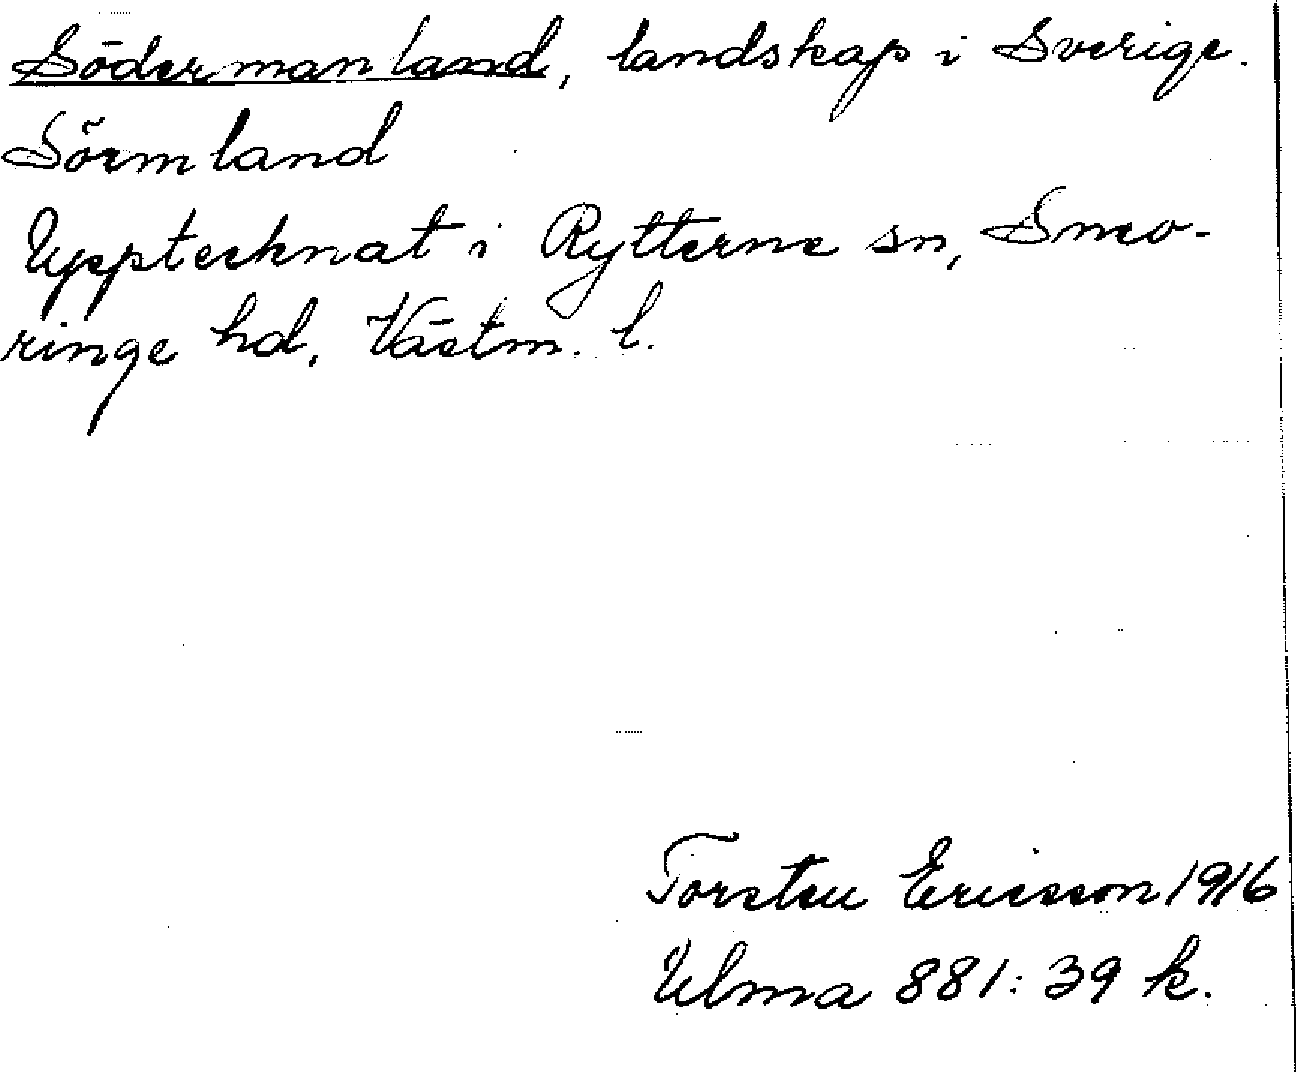 Södermanland, landskap i Sverige.
Sörmland
Upptecknat i Rytterne sn, Snevringe hd, Västm. l.
Torsten Ericsson 1916
Ulma 881:39 k.